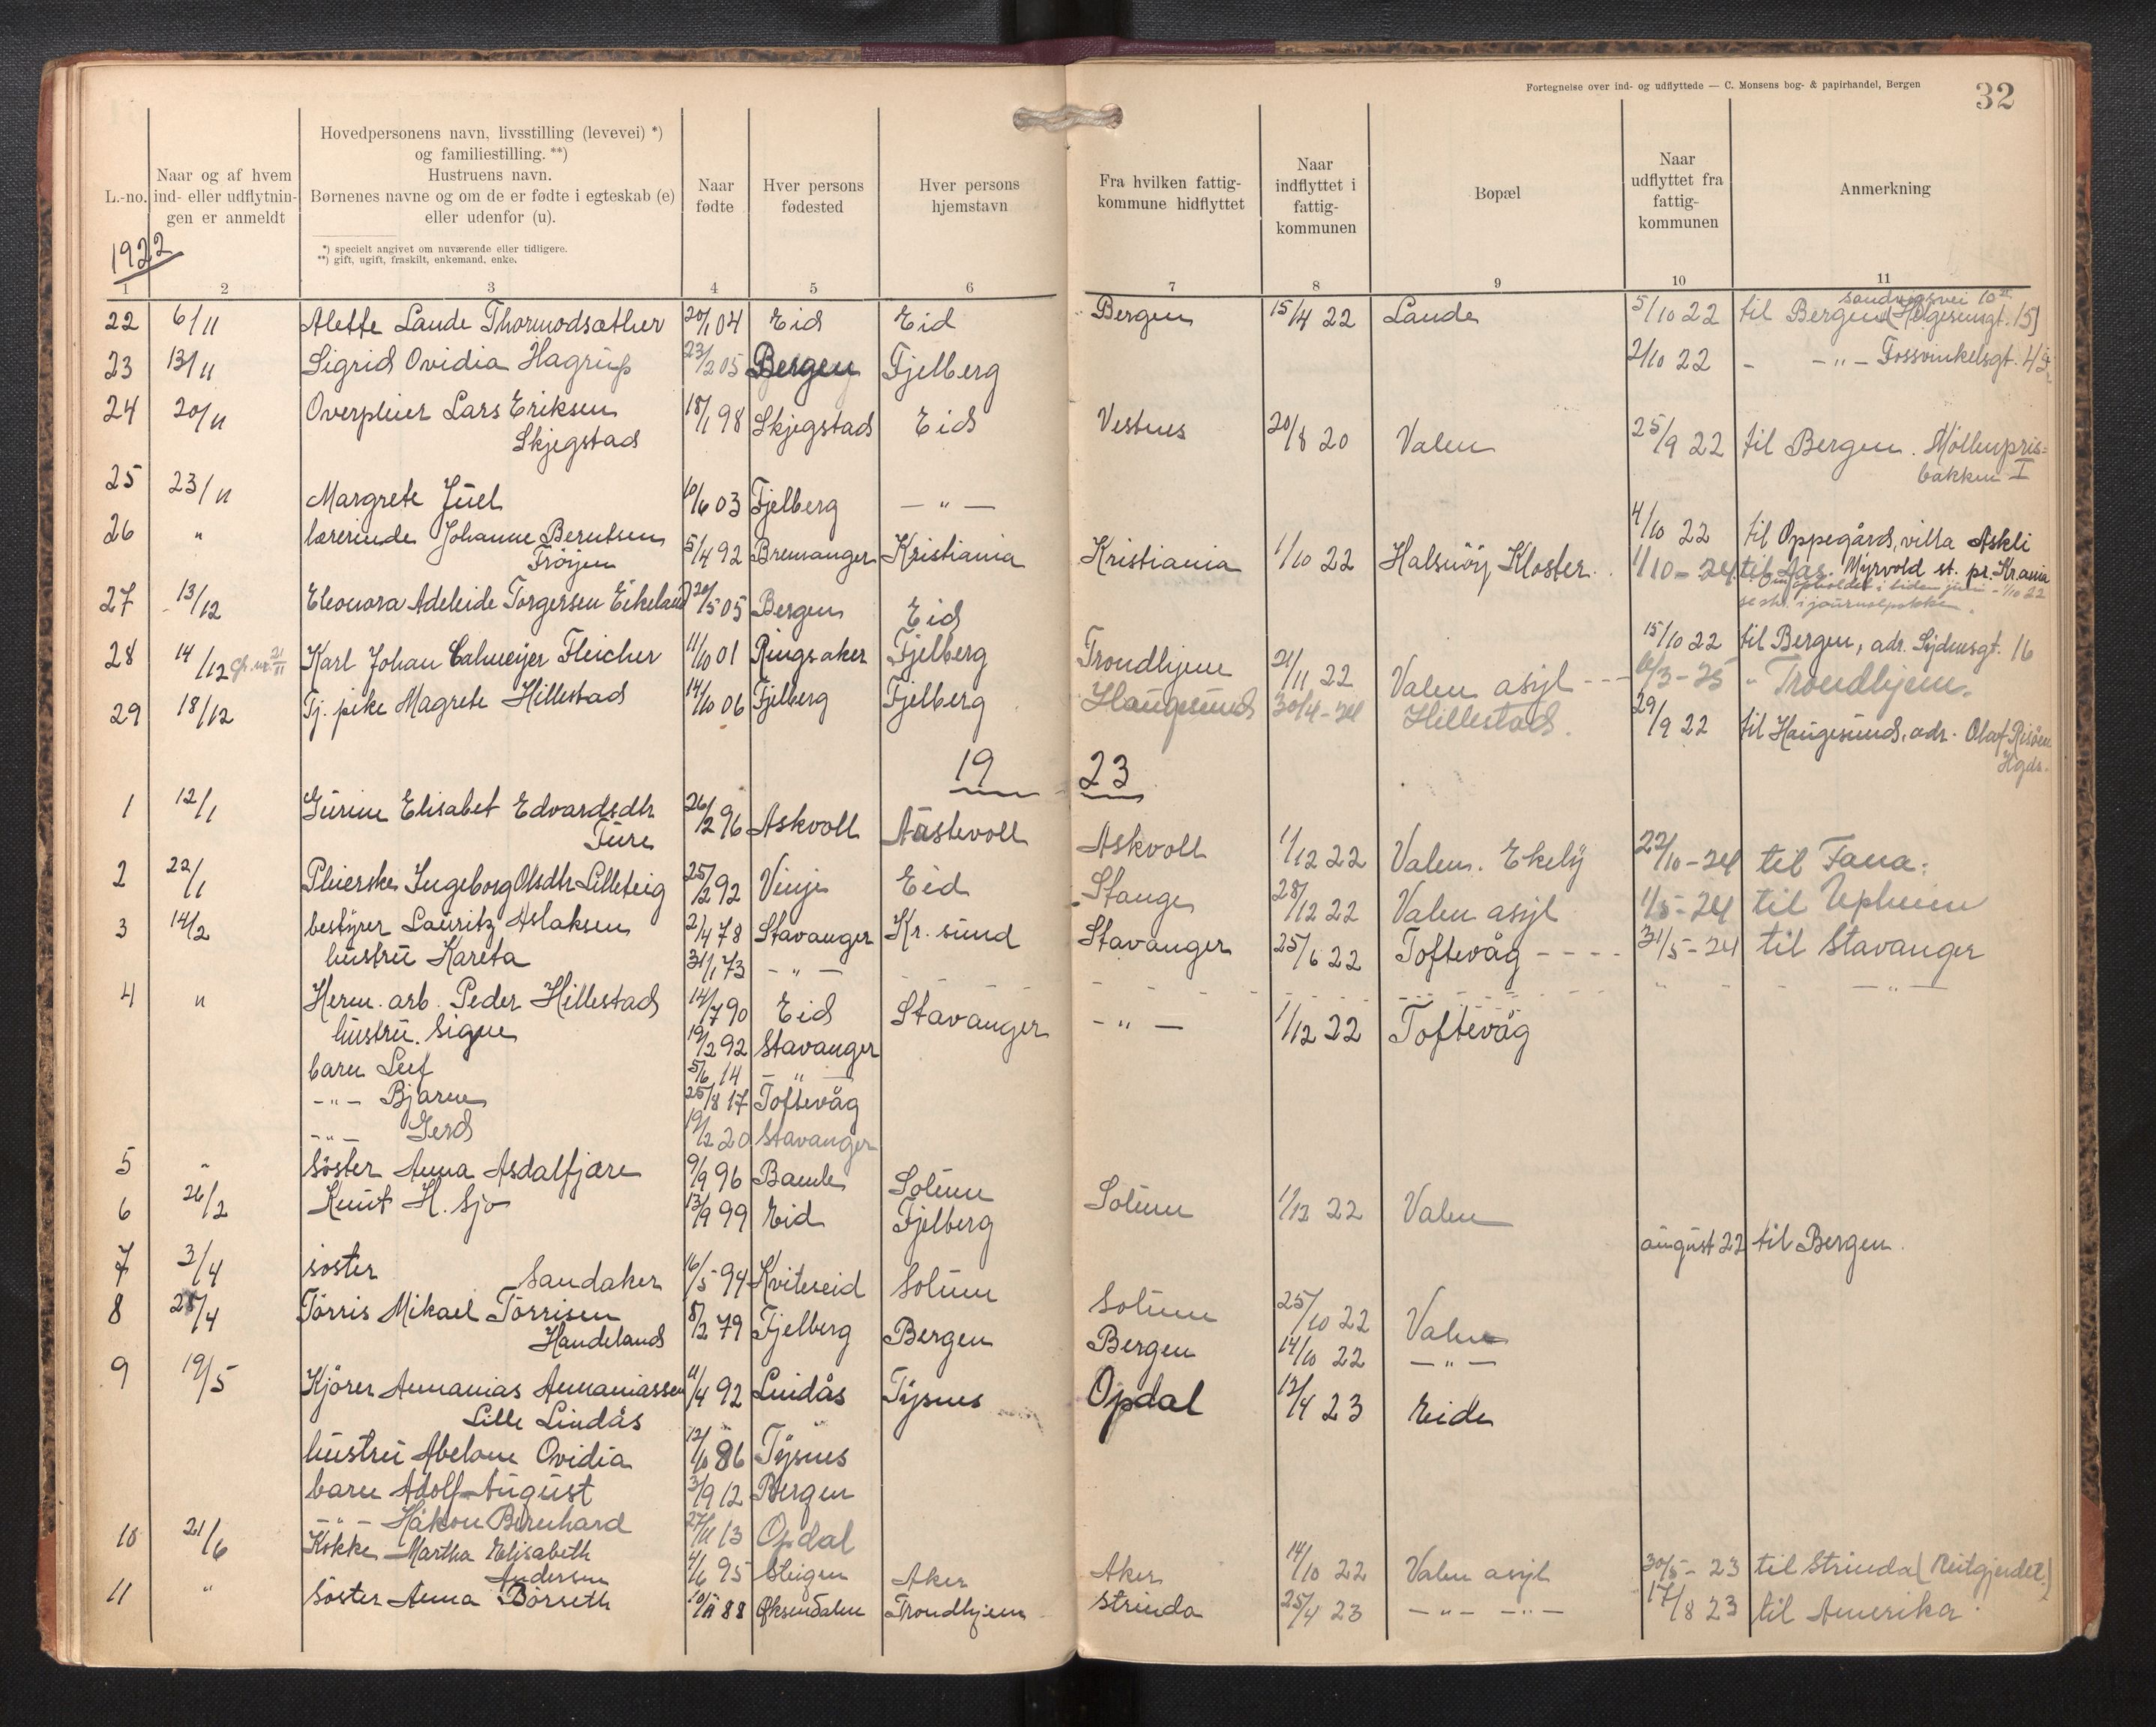 Fortegnelse over ind- og udflyttede — C. Monsens bog- & papirhandel, Bergen
32
L.-no.
Naar og af hvem ind- eller udflytningen er anmeldt
Hovedpersonens navn, livsstilling (levevei) *)
og familiestilling. **)
Hustruens navn.
Børnenes navne og om de er fødte i egteskab (e)
eller udenfor (u).
*) specielt angivet om nuværende eller tidligere.
**) gift, ugift, fraskilt, enkemand, enke.
Naar fødte
Hver persons fødested
Hver persons hjemstavn
Fra hvilken fattigkommune hidflyttet
Naar indflyttet i fattigkommunen
Bopæl
Naar udflyttet fra fattigkommunen
Anmerkning
1922
1 2 3 4 5 6 7 8 9 10 11
22 6/11 Alette Lande Thormodsæther 20/1 04 Eid Eid Bergen 15/4 22 Lande 5/10 22 til Bergen (Helgesensgt. 15)
Sandviksvei 10
23 13/11 Sigrid Ovidia Hagrup 23/2 05 Bergen Fjelberg 2/10 22 - -"- Fossvinkelsgt. 42
24 20/11 Overpleier Lars Eriksen 18/1 98 Skjegstad Eid Vestnes 20/8 20 Valen 25/9 22 til Bergen. Møllenpris=
Skjegstad bakken I
25 23/11 Margrete Juel 10/6 03 Fjelberg -"- 4/10 22 til Oppegård, villa Askli
Myrvold st. pr. Kr.ania
26 " lærerinde Johanne Berntsen 5/4 92 Bremanger Kristiania Kristiania 1/10 22 Halsnöy Kloster 1/10-24 til Aas.
Fröyen
27 13/12 Eleonora Adeleide Torgersen Eikeland 20/5 05 Bergen Eid 15/10 22 til Bergen, adr. Sydnesgt. 16
28 14/12 Karl Johan Calmeyer Fleicher 11/10 01 Ringsaker Fjelberg Trondhjem 21/11 22 Valen asyl /3-25 " Trondhjem.
29 18/12 Tj. pike Magrete Hillestad 14/10 06 Fjelberg Fjelberg Haugesund 30/4-24 Hillestad. 29/9 22 til Haugesund, adr. Olaf Risøen
Hgds.
19 23
1 12/1 Gurine Elisabet Edvardsdtr 26/2 96 Askvoll Aastevoll Askvoll 1/12 22 Valen. Ekely 22/10-24 til Fana.
Ture
2 22/1 Pleierske Ingeborg Olsdtr Lilleteig 25/2 92 Vinje Eid Stange 28/12 22 Valen asyl 1/5-24 til Opheim
3 14/2 bestyrer Lauritz Aslaksen 2/4 78 Stavanger Kr. sund Stavanger 25/6 22 Toftevåg 31/5-24 til Stavanger
hustru Kareta 31/1 73 -"- -"-
4 " Herm. arb. Peder Hillestad 14/7 90 Eid Stavanger -"- 1/12 22 Toftevåg
hustru. Signe 19/2 92 Stavanger
barn Leif 5/6 14 -"-
-"- Bjarne 25/8 17 Toftevåg
-"- Gerd 19/2 20 Stavanger
5 " Söster Anna Asdalfjære 9/9 96 Bamle Solum Solum 1/12 22 Valen
6 26/2 Knut H. Sjo 13/9 99 Eid Fjelberg august 22 til Bergen.
7 3/4 söster Sandaker 16/5 94 Kviteseid Solum Solum 25/10 22 Valen
8 25/4 Törris Mikael Törrisen 8/2 79 Fjelberg Bergen Bergen 14/10 22 -"-
Handeland
9 19/5 Kjörer Annanias Annaniassen 11/4 92 Lindås Tysnes Opdal 12/4 23 Eide
Lille Lindås
hustru Abelone Ovidia 12/6 86 Tysnes
barn Adolf August 3/9 12 Bergen
-"- Håkon Bernhard 27/11 13 Opdal
10 21/6 Kokke Martha Elisabeth 4/6 95 Steigen Aker Aker 14/10 22 Valen asyl 30/5-23 til Strinda (Reitgjerdet)
Andersen
11 " Söster Anna Börseth 10/12 88 Øksendalen Trondhjem Strinda 25/4 23 -"- -"- 17/8 23 til Amerika.